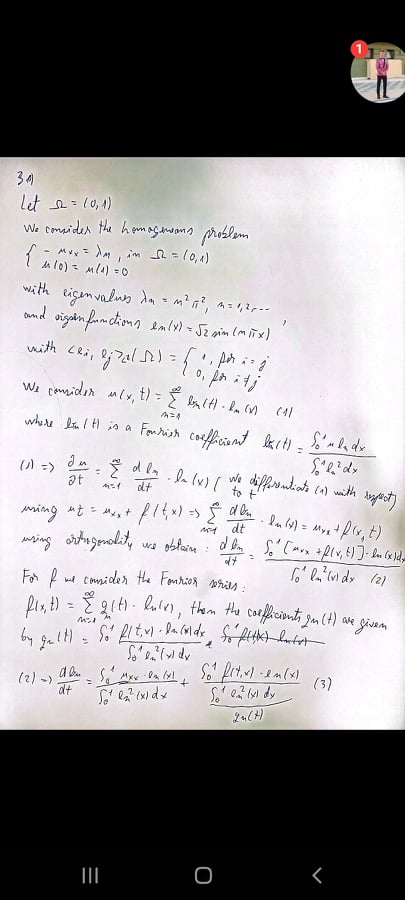 1
3A)
Let Ω = (0,1)
We consider the homogeneous problem
{ - uxx = λu, in Ω = (0,1)
u(0) = u(1) = 0
with eigenvalues λn = n²π², n = 1,2,...,
and eigenfunctions en(x) = √2 sin(nπx)
with <ei, ej>L²(Ω) = { 1, for i = j
0, for i ≠ j
We consider u(x,t) = ∑_{n=1}^∞ bn(t) · en(x) (1)
where bn(t) is a Fourier coefficient bn(t) = ∫₀¹ u en dx / ∫₀¹ en² dx
(1) => ∂u/∂t = ∑_{n=1}^∞ d bn/dt · en(x) (we differentiate (1) with respect
to t)
using ut = uxx + f(t,x) => ∑_{n=1}^∞ d bn/dt · en(x) = uxx + f(x,t)
using orthogonality we obtain: d bn/dt = ∫₀¹ [uxx + f(x,t)] · en(x) dx / ∫₀¹ en²(x) dx (2)
For f we consider the Fourier series:
f(x,t) = ∑_{n=1}^∞ gn(t) · en(x), then the coefficients gn(t) are given
by gn(t) = ∫₀¹ f(t,x) · en(x) dx / ∫₀¹ en²(x) dx
(2) => d bn/dt = ∫₀¹ uxx · en(x) / ∫₀¹ en²(x) dx + ∫₀¹ f(t,x) · en(x) / ∫₀¹ en²(x) dx (3)
gn(t)